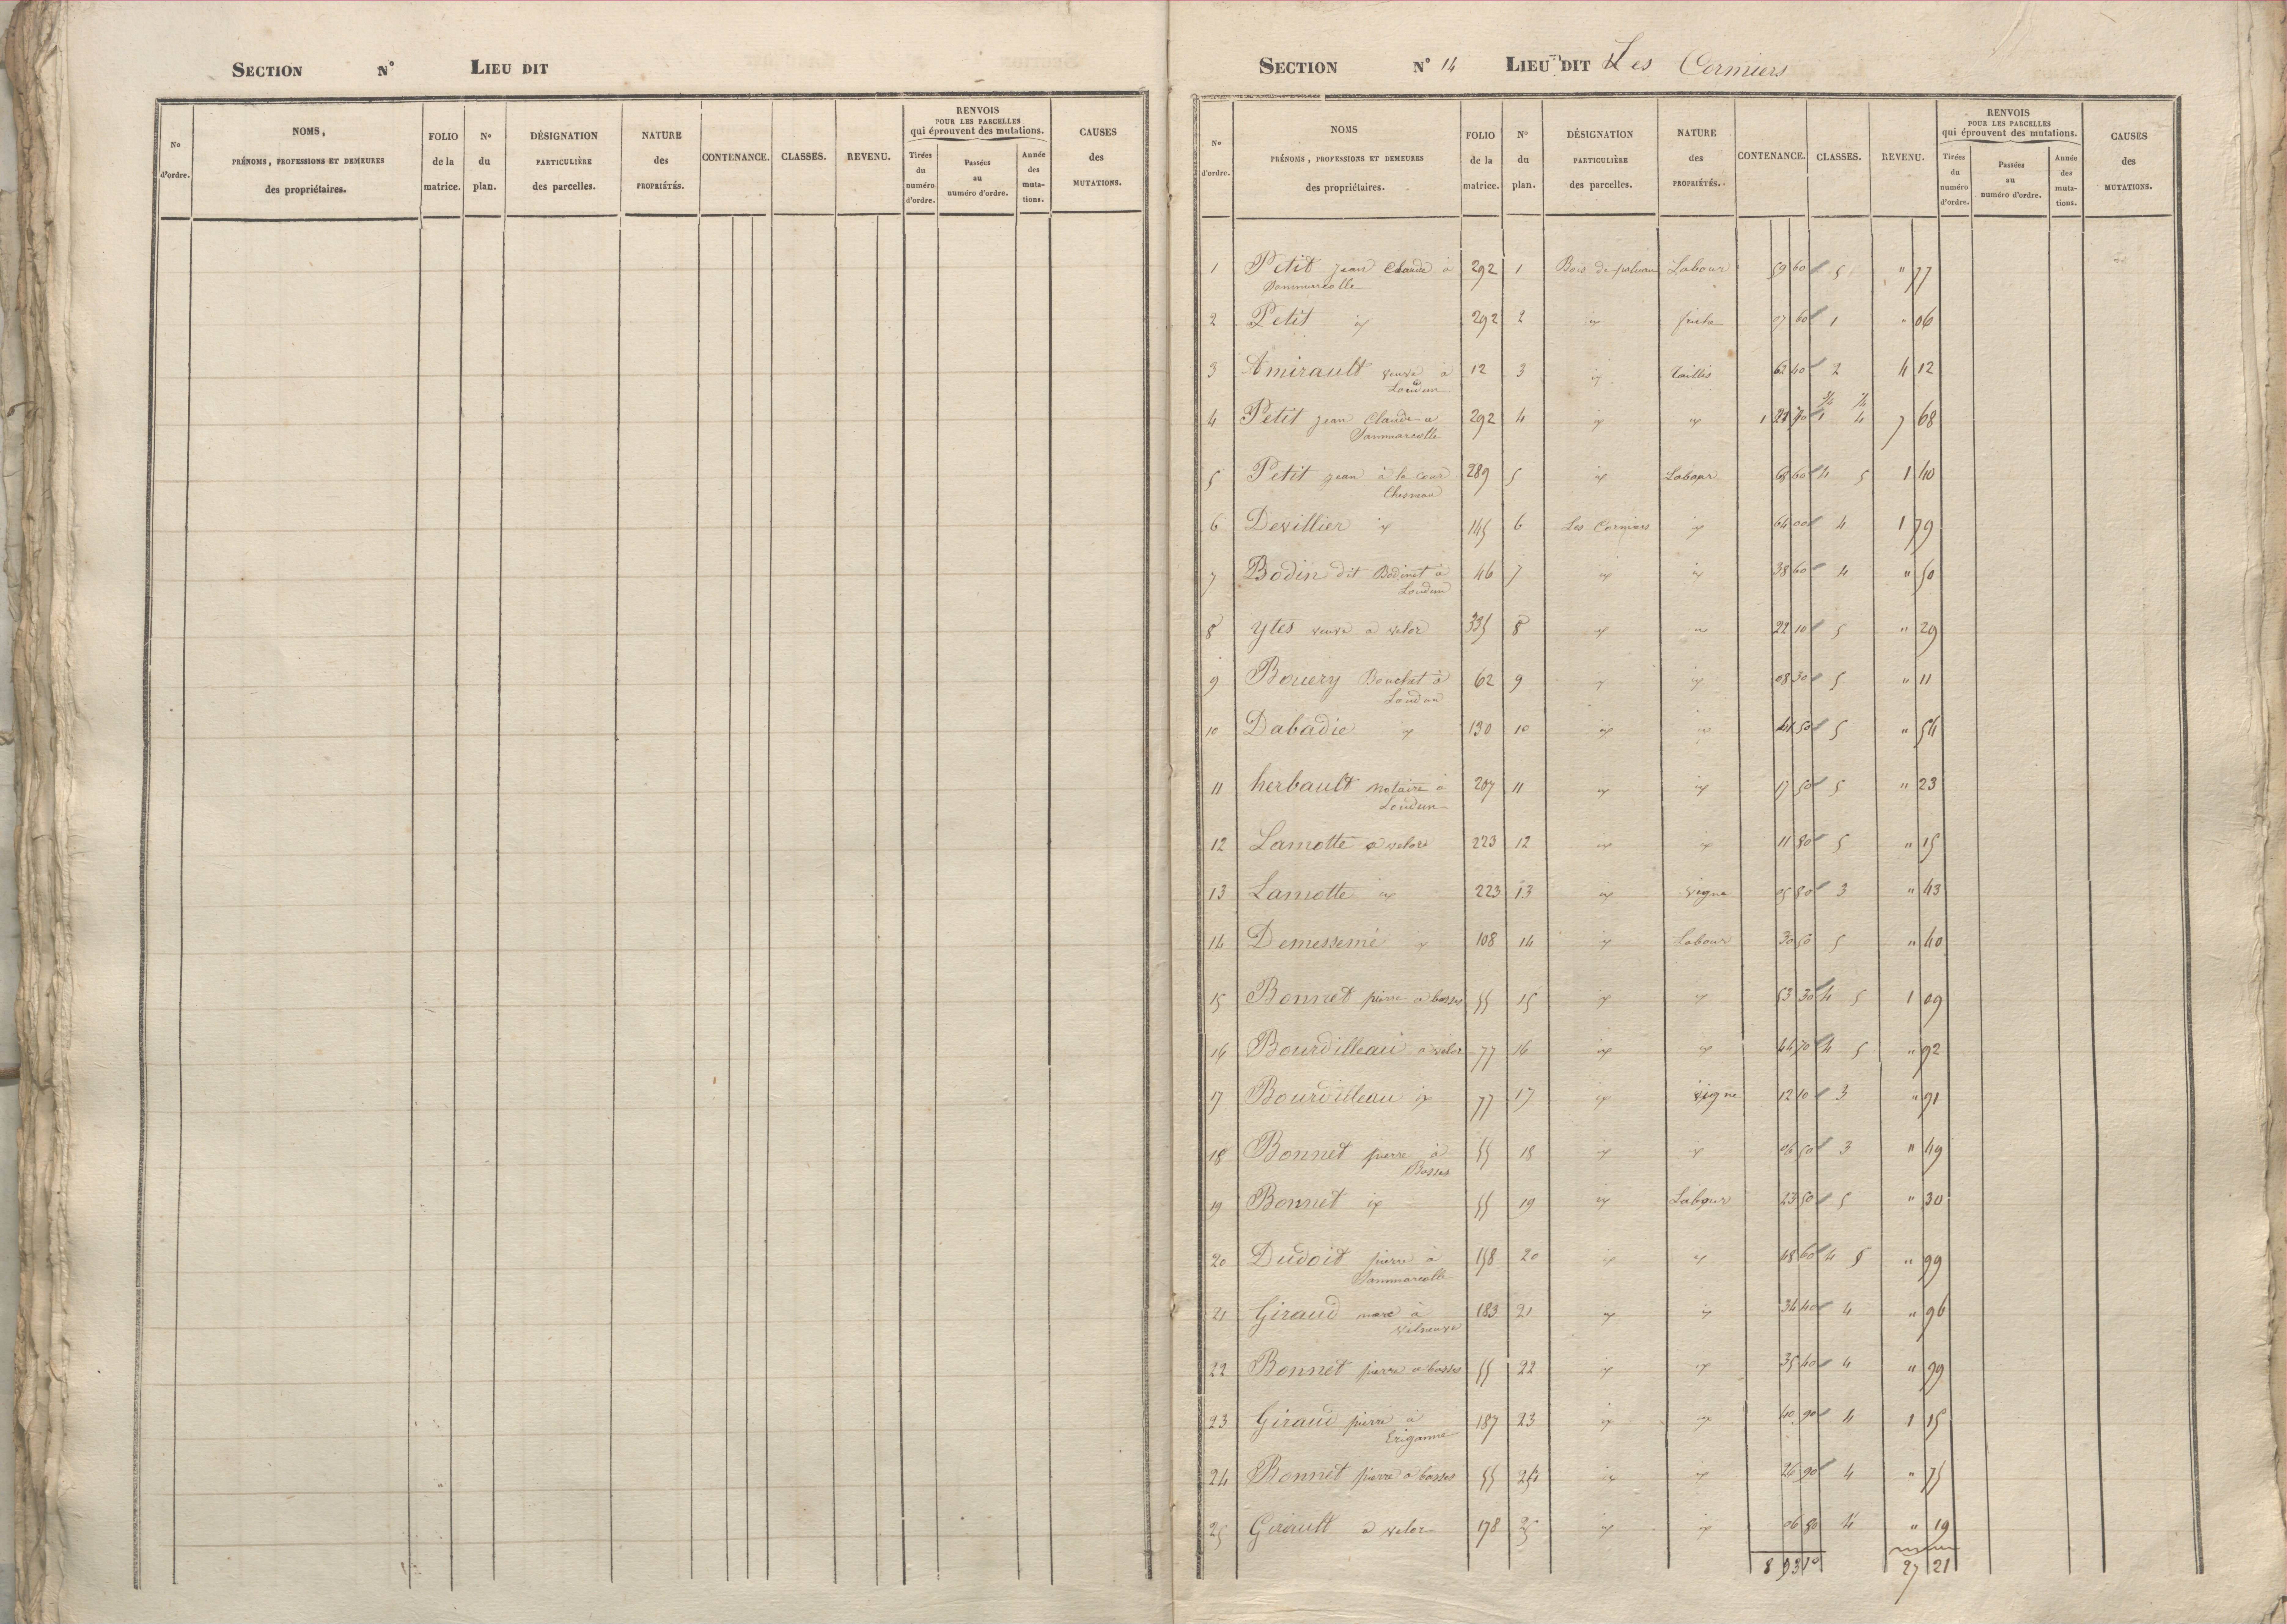 SECTION N° LIEU DIT
No d'ordre.
NOMS, PRÉNOMS, PROFESSIONS ET DEMEURES des propriétaires.
FOLIO de la matrice.
No du plan.
DÉSIGNATION PARTICULIÈRE des parcelles.
NATURE des PROPRIÉTÉS.
CONTENANCE.
CLASSES.
REVENU.
RENVOIS POUR LES PARCELLES qui éprouvent des mutations.
Tirées du numéro d'ordre.
Passées au numéro d'ordre.
Année des mutations.
CAUSES des MUTATIONS.
SECTION N° 14 LIEU DIT Les Cormiers
No d'ordre.
NOMS PRÉNOMS, PROFESSIONS ET DEMEURES des propriétaires.
FOLIO de la matrice.
No du plan.
DÉSIGNATION PARTICULIÈRE des parcelles.
NATURE des PROPRIÉTÉS.
CONTENANCE.
CLASSES.
REVENU.
RENVOIS POUR LES PARCELLES qui éprouvent des mutations.
Tirées du numéro d'ordre.
Passées au numéro d'ordre.
Année des mutations.
CAUSES des MUTATIONS.
1 Petit jean Claude à 292 1 Bois de Labour 59 60 5 " 77
Sammarcolle
2 Petit id 292 2 id friche 07 60 1 " 06
3 Amirault veuve à 12 3 id Taillis 62 40 2 4 12
Loudun
4 Petit jean Claude a 292 4 id id 1 70 7 68
Sammarcolle
5 Petit jean à la Cour 289 5 id Labour 60 4 5 1 40
6 Devillier id 145 6 Les Cormiers id 64 00 4 1 79
7 Bodin dit Bodinet à 46 7 id id 38 60 4 " 50
Loudun
8 Ytes veuve a velor 335 8 id id 22 10 5 " 29
9 Bouery Bouchet à 62 9 id id 08 30 5 " 11
Loudun
10 Dabadie id 130 10 id id 41 50 5 " 54
11 herbault notaire à 207 11 id id 17 50 5 " 23
Loudun
12 Lamotte a velor 223 12 id id 11 80 5 " 15
13 Lamotte id 223 13 id vigne 05 80 3 " 43
14 Demessemé id 108 14 id Labour 30 50 5 " 40
15 Bonnet pierre a bosses 55 15 id id 53 30 4 5 1 09
16 Bourdilleau a velor 77 16 id id 44 70 4 5 " 92
17 Bourdilleau id 77 17 id vigne 12 10 3 " 91
18 Bonnet pierre à 55 18 id id 06 50 3 " 49
Bosses
19 Bonnet id 55 19 id Labour 23 50 5 " 30
20 Dudoit pierre à 158 20 id id 48 60 4 5 " 99
Sammarcolle
21 Giraud marc à 183 21 id id 34 40 4 " 96
22 Bonnet pierre a bosses 55 22 id id 35 40 4 " 99
23 Giraud pierre à 187 23 id id 40 90 4 1 15
24 Bonnet pierre a bosses 55 24 id id 26 90 4 " 75
25 Girault a velor 178 25 id id 06 80 4 " 19
8 93 10 27 21